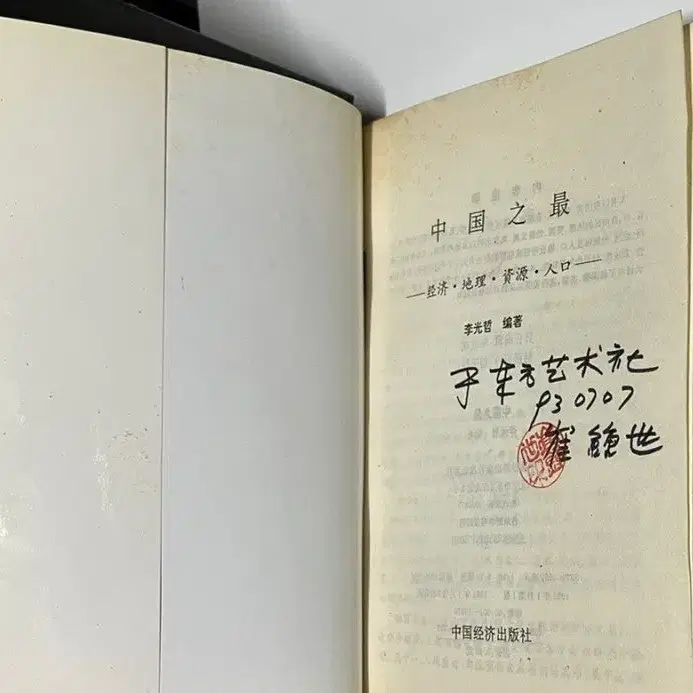 中国之最
——经济·地理·资源·人口——
李光哲 编著
于东方艺术社
930707
崔
世
中国经济出版社